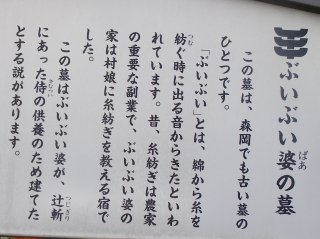 ぶいぶい婆の墓
ばあ
この墓は、森岡でも古い墓の
ひとつです。
「ぶいぶい」とは、綿から糸を
つむ
紡ぐ時に出る音からきたといわ
れています。昔、糸紡ぎは農家
の重要な副業で、ぶいぶい婆の
家は村娘に糸紡ぎを教える宿で
した。
この墓はぶいぶい婆が、辻斬
つじぎり
にあった侍の供養のため建てた
さむらい
とする説があります。